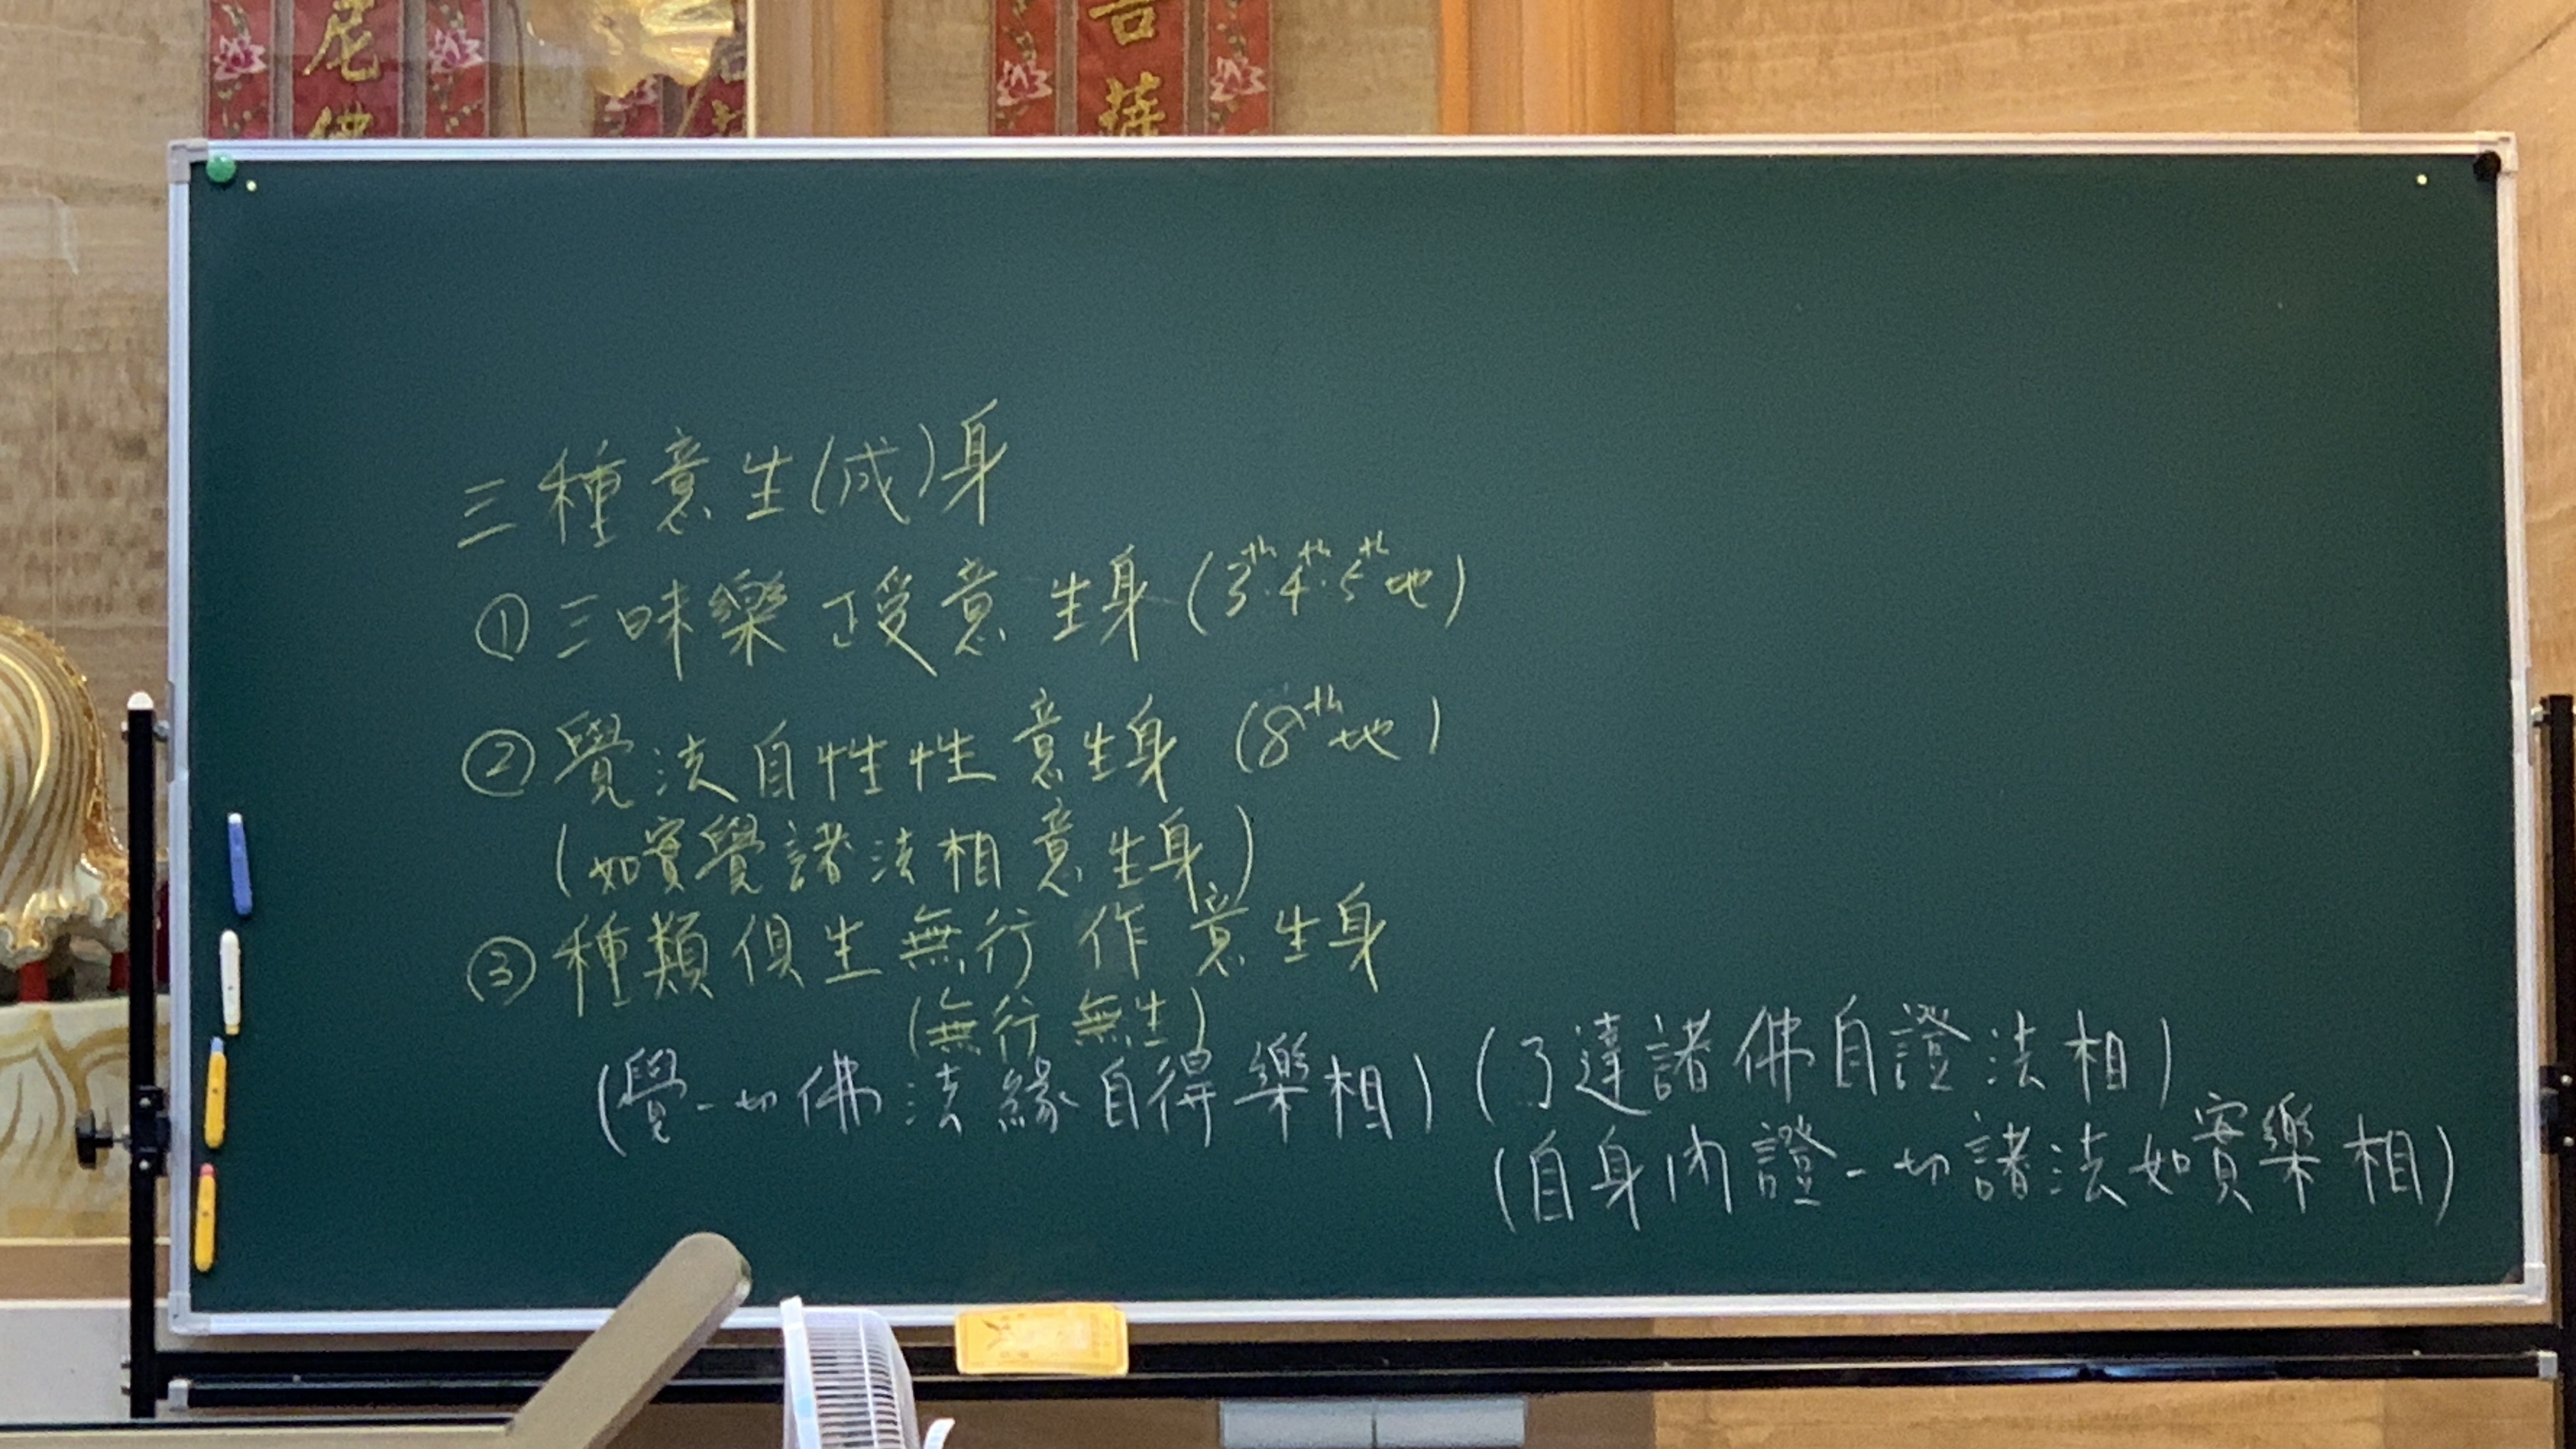 尼佛
菩薩
三種意生(成)身
①三昧樂正受意生身(3th.4th.5th地)
②覺法自性性意生身 (8th地)
(如實覺諸法相意生身)
③種類俱生無行作意生身
(無行無生)
(覺一切佛法緣自得樂相) (了達諸佛自證法相)
(自身內證一切諸法如實樂相)